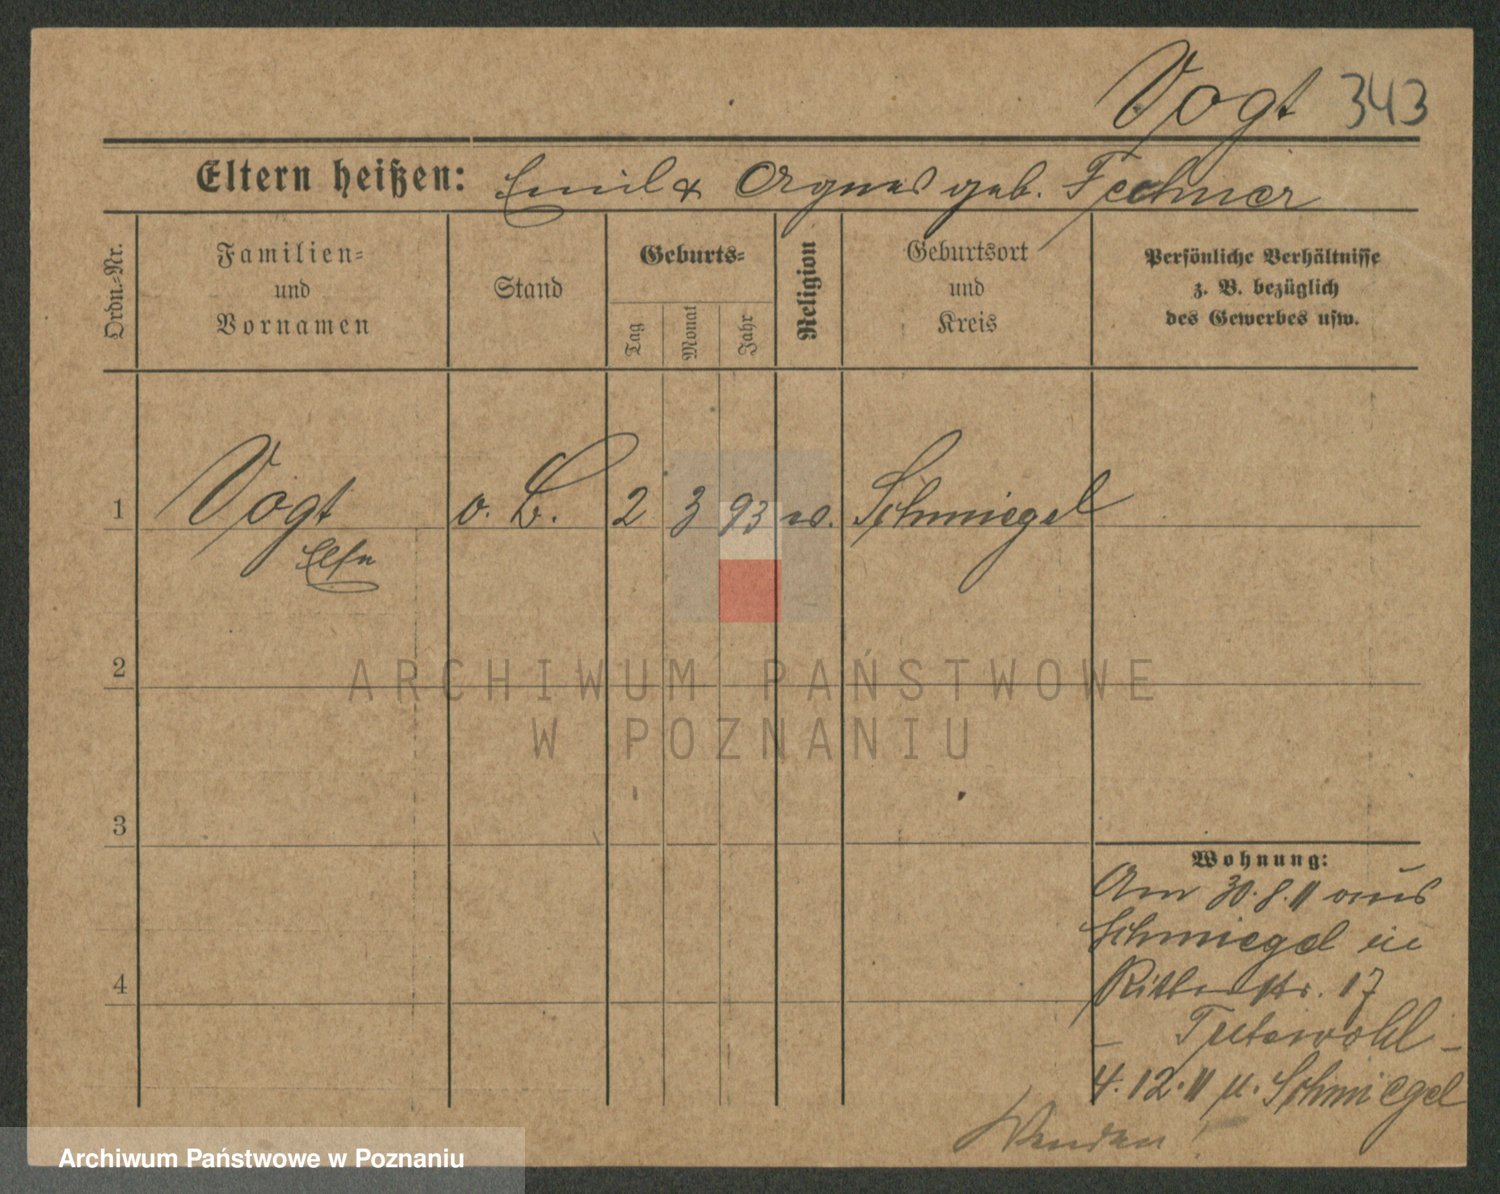 Vogt 343
Eltern heißen: Emil & Agnes geb. Fechner
Ordn.-Nr.
Familien-
und
Vornamen
Stand
Geburts-
Tag
Monat
Jahr
Religion
Geburtsort
und
Kreis
Persönliche Verhältnisse
z. B. bezüglich
des Gewerbes usw.
1 Vogt o. B. 2 3 93 Schmiegel
Else
2
3
4
Wohnung:
Am 30.8.11 aus
Schmiegel in
Ritterstr. 17
4.12.11 n. Schmiegel
Wenden!
ARCHIWUM PAŃSTWOWE
W POZNANIU
Archiwum Państwowe w Poznaniu